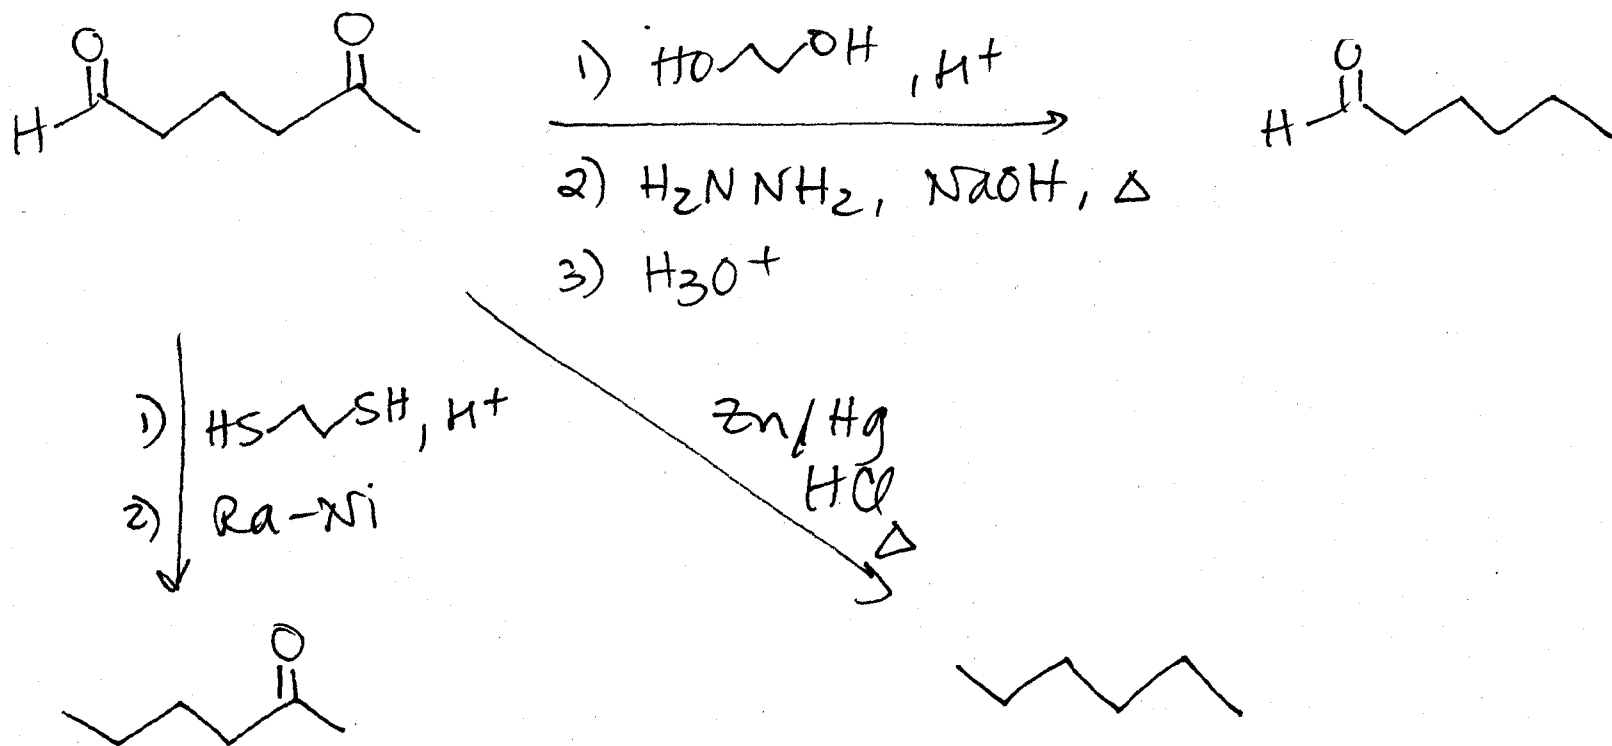 O
O
H
1) HO OH , H+
2) H2N NH2, NaOH, Δ
3) H3O+
O
H
1) HS SH, H+
2) Ra-Ni
Zn/Hg
HCl
Δ
O